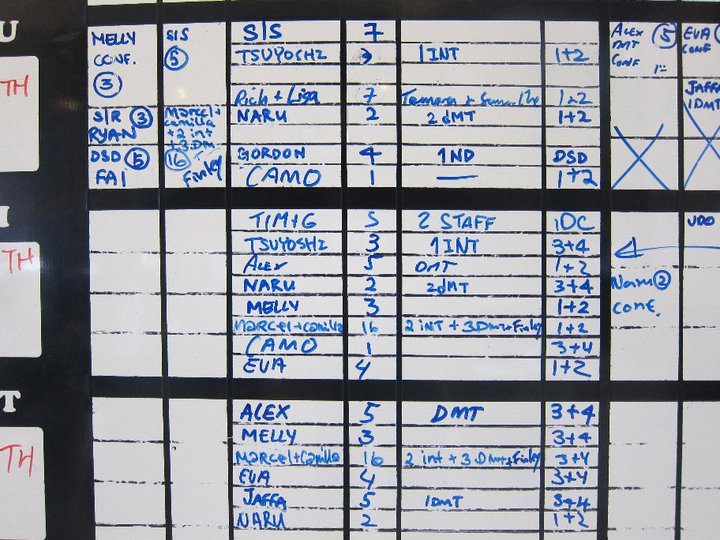 U
TH
MELLY
CONF.
3
S/S
5
S/R 3
RYAN
DSD 5
FAI
Marcel+
camilla
+2 int
+3 DM
16
Finley
S/S 7
TSUYOSHI 1 INT 1+2
Rich + Lisa 7 1+2
NARU 2 2 dMT 1+2
GORDON 4 1ND DSD
CAMO 1 — 1+2
ALEX 5
DMT
CONF
EVA
CONF
JAFFA
1DMT
I
TH
TIM+G 5 2 STAFF iDC
TSUYOSHI 3 1INT 3+4
Alex 5 DMT 1+2
NARU 2 2dMT 3+4
MELLY 3 1+2
Marcel+Camilla 16 2 iNT + 3 Dmt+Finley 1+2
CAMO 1 3+4
EVA 4 1+2
UDO
Naru 2
CONF.
T
TH
ALEX 5 DMT 3+4
MELLY 3 3+4
Marcel+Camilla 16 2 int + 3 Dmt+Finley 3+4
EVA 4 3+4
JAFFA 5 1DMT 3+4
NARU 2 1+2